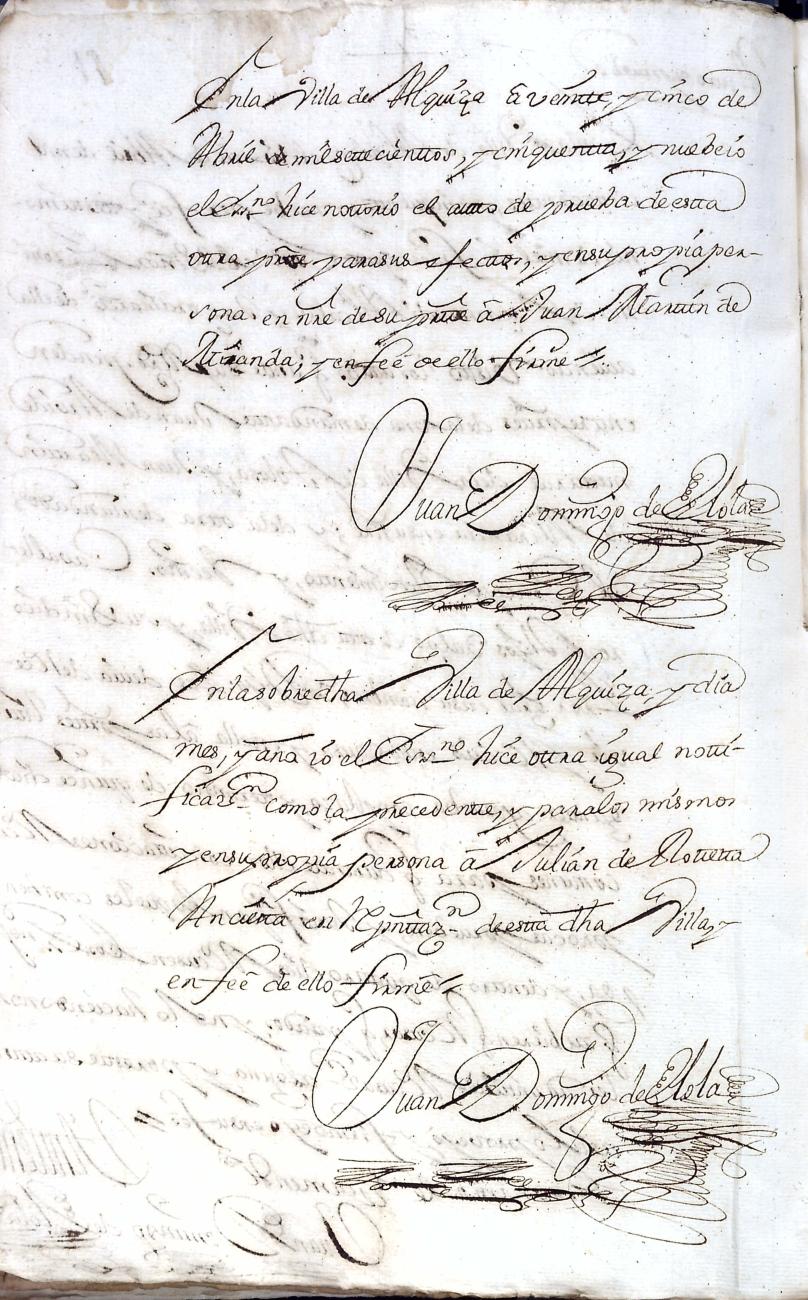 En la Villa de Alquiza â veintte, y cinco de
Abril de mil settecienttos, y cinquentta, y nuebe io
el Essno hice nottorio el autto de prueba de estta
ottra partte para sus efecttos, y en su propia per-
sona en nre de su partte â Juan Martin de
Miranda; y en feê de ello firmê
Juan Domingo de Elola
En la sobredha Villa de Alquiza, y dia
mes, y año io el Essno hice ottra igual notti-
ficazn como la precedentte, y para los mismos
y en su propia persona â Julian de Rotteta
Ancieta en Rpnttazn de estta dha Villa, y
en feê de ello firmê
Juan Domingo de Elola